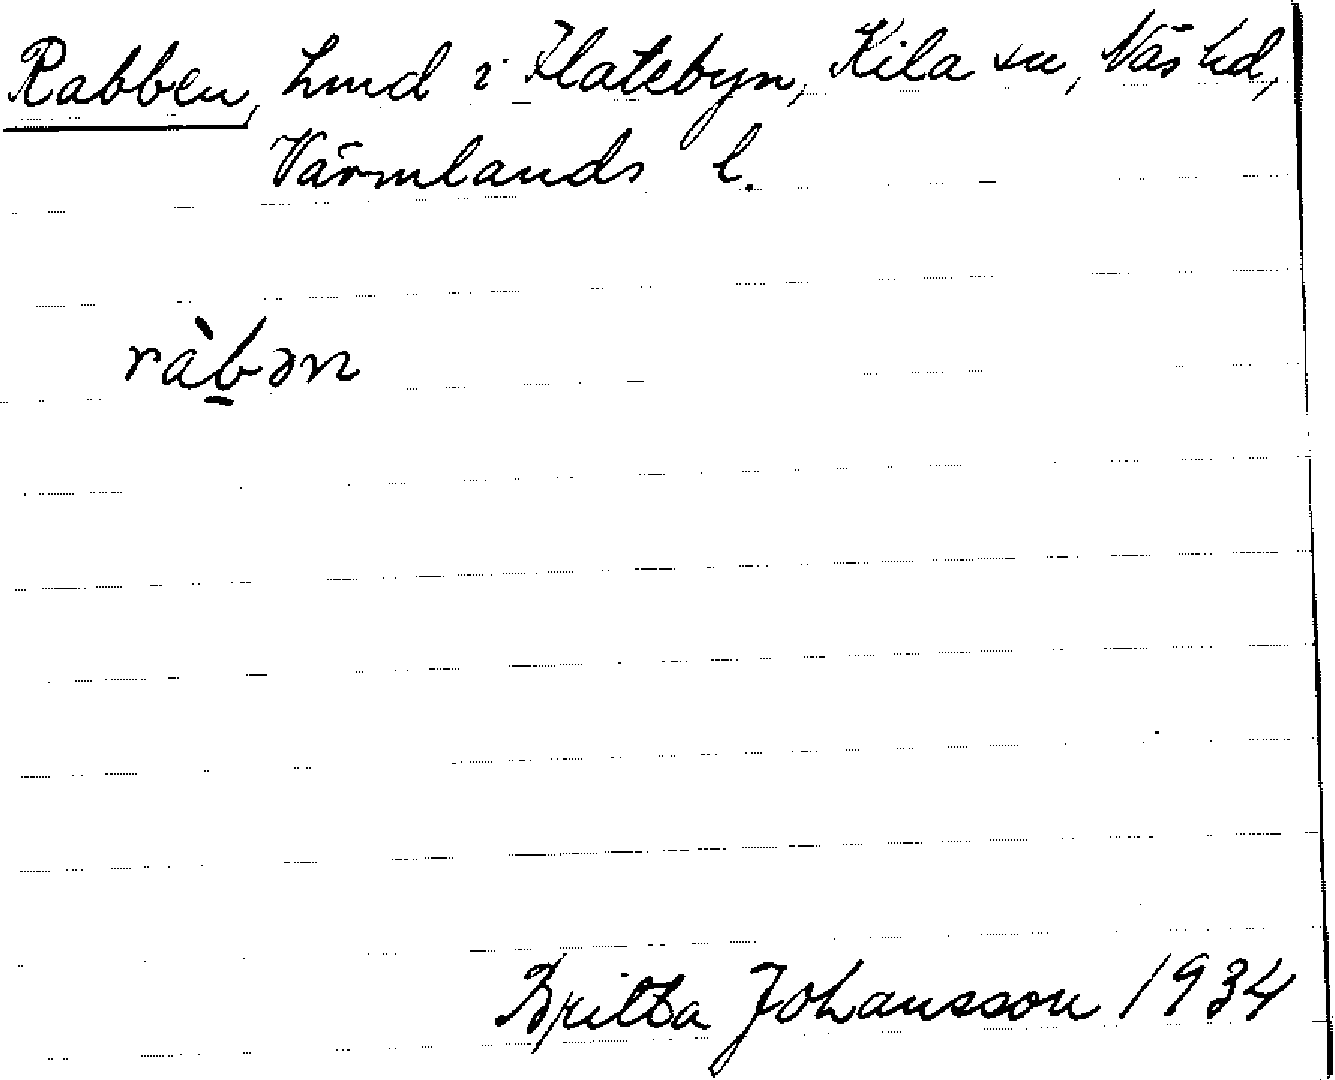 Rabben, hmd i Flatebyn, Kila sn, Näs hd,
Värmlands l.
ràb̲ən
Britta Johansson 1934